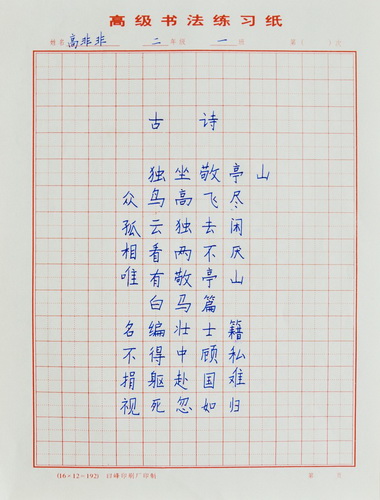 高级书法练习纸
姓名 高非非 二 年级 一 班 第( )次
古诗
独坐敬亭山
众鸟高飞尽
孤云独去闲
相看两不厌
唯有敬亭山
白马篇
名编壮士籍
不得中顾私
捐躯赴国难
视死忽如归
(16×12=192) 印刷厂印制 第 页